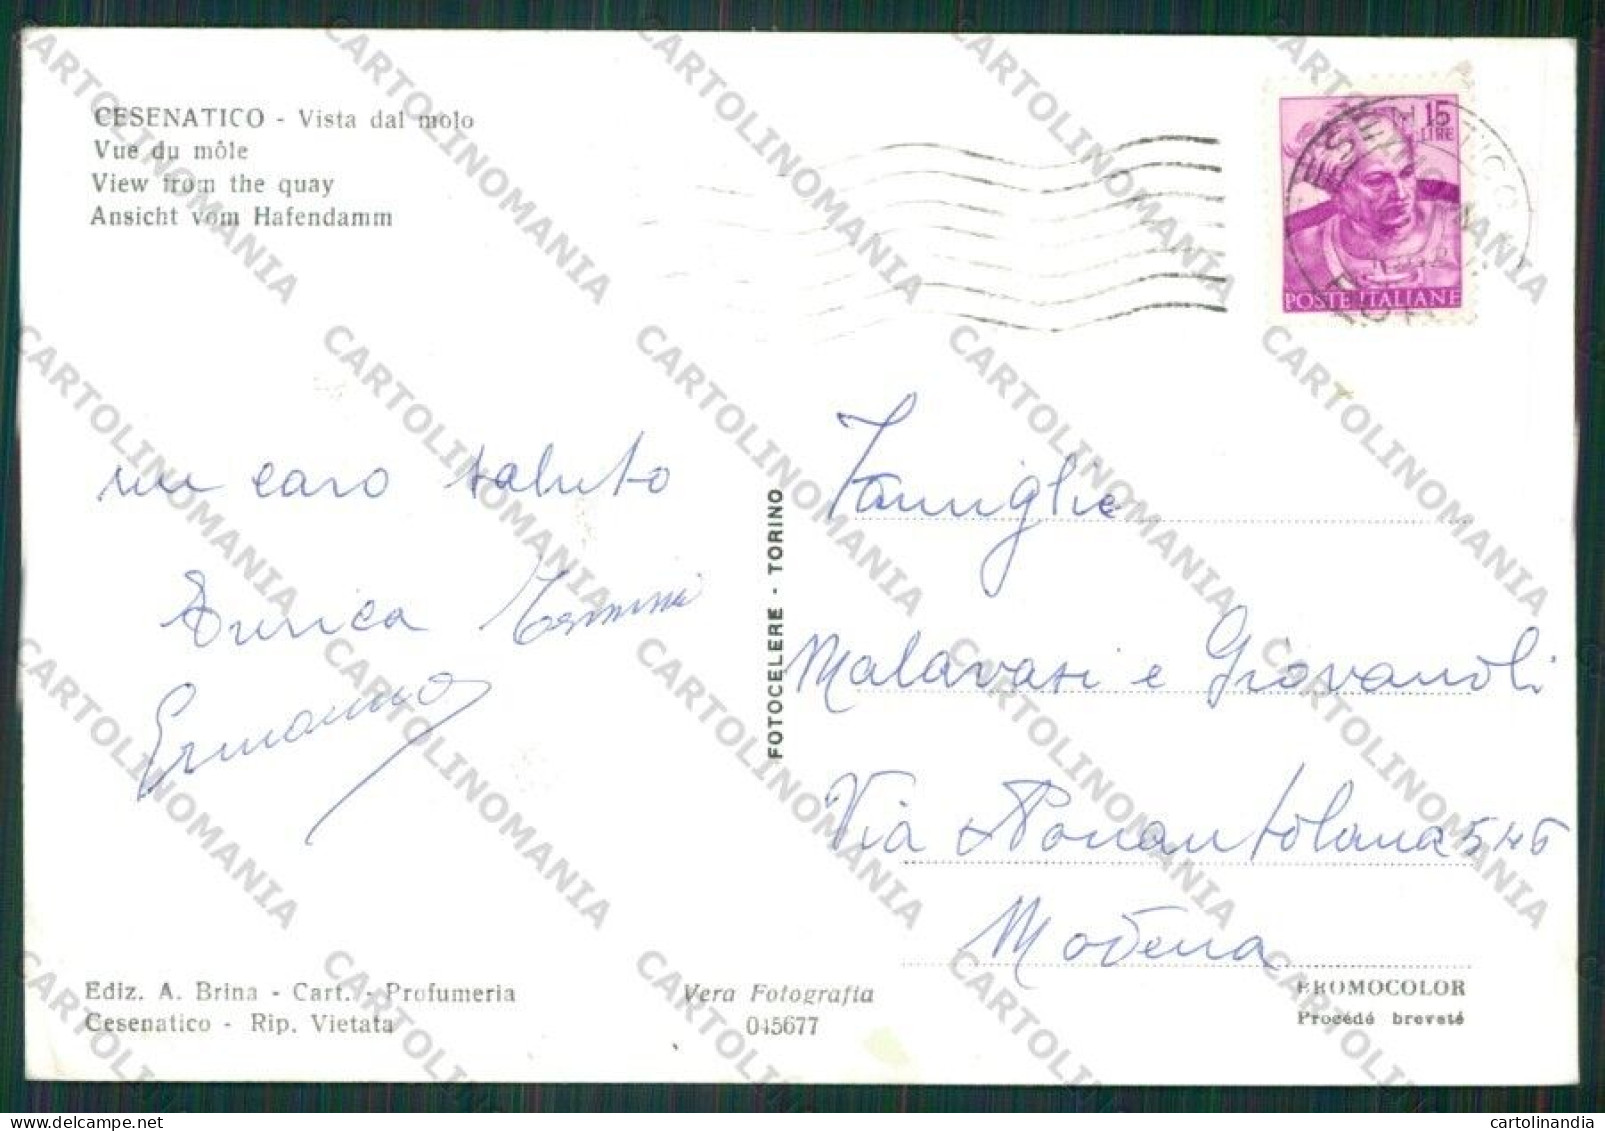 CESENATICO - Vista dal molo
Vue du môle
View from the quay
Ansicht vom Hafendamm
15
LIRE
POSTE ITALIANE
un caro saluto
Enrica
Ermanno
FOTOCELERE - TORINO
Famiglie
Malavasi e Giovanoli
Via Nonantolana 546
Modena
Ediz. A. Brina - Cart. - Profumeria
Cesenatico - Rip. Vietata
Vera Fotografia
045677
BROMOCOLOR
Procédé breveté
CARTOLINOMANIA
cartolinandia